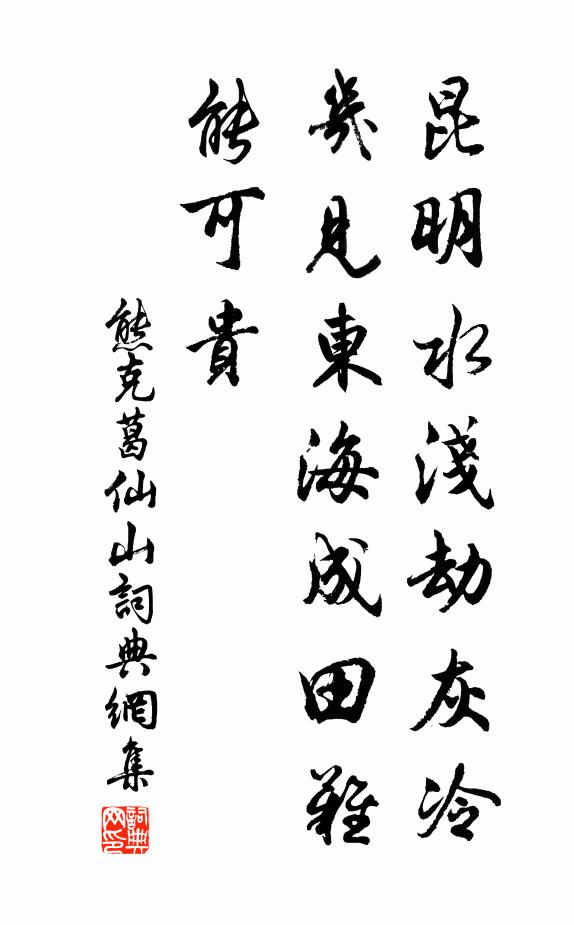 昆明水淺劫灰冷
幾見東海成田難
能可貴
熊克葛仙山詞典網集
詞典
网印